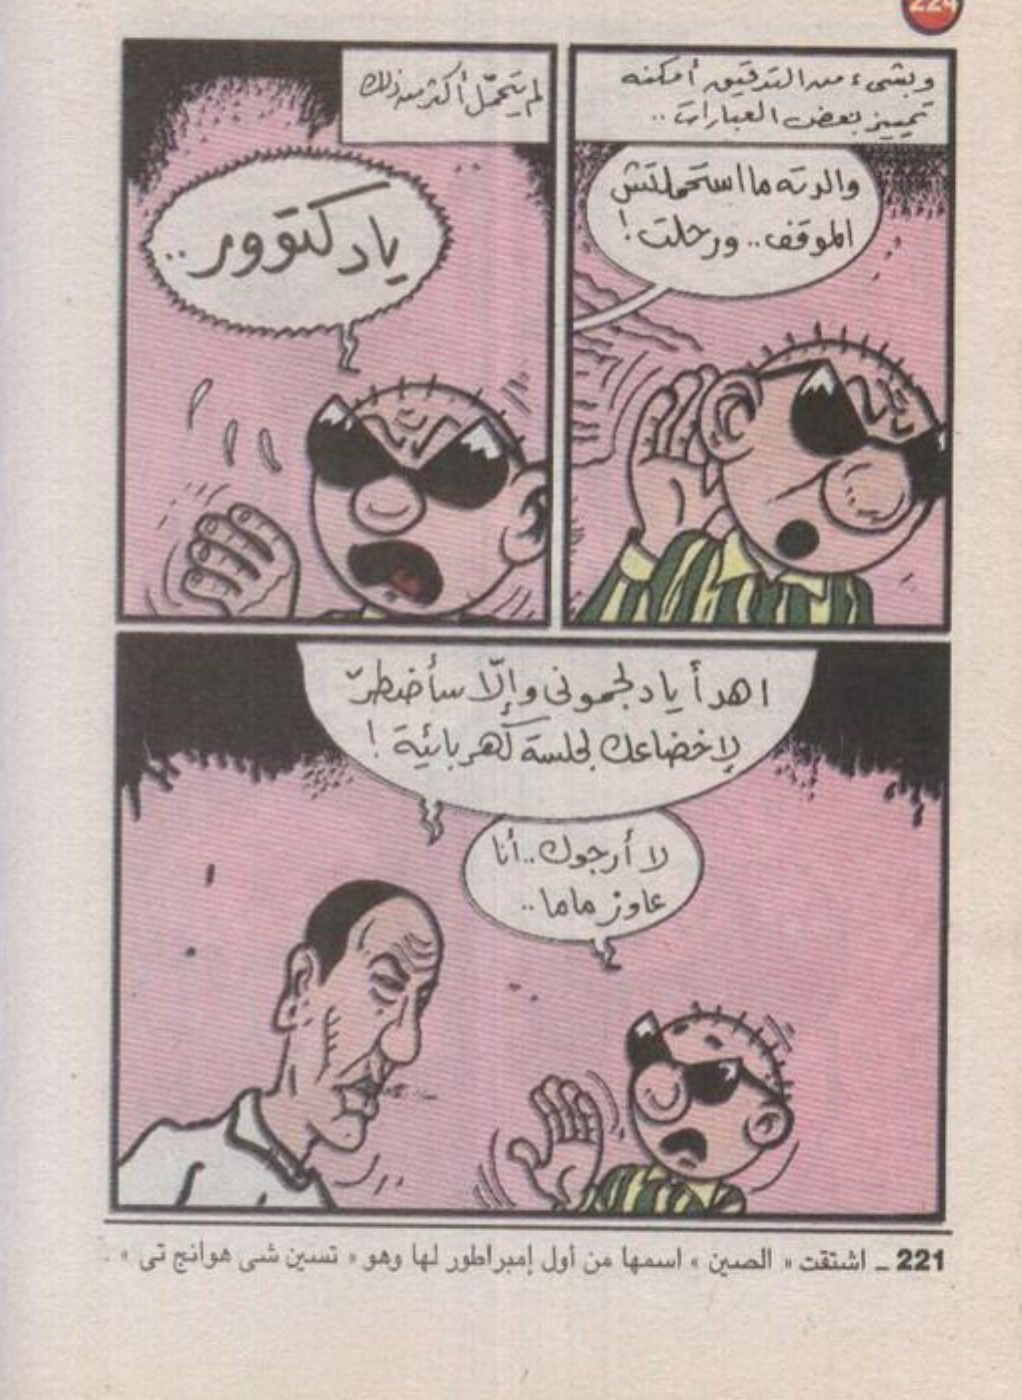 224
وبشىء من التدقيق أمكنه
تمييز بعض العبارات ..
والدته ما استحملتش
الموقف .. ورحلت !
لم يتحمّل أكثر من ذلك
يا دكتوور ..
اهدأ يا دلجمونى وإلّا سأضطرّ
لإخضاعك لجلسة كهربائية !
لا أرجوك .. أنا
عاوز ماما ..
221 ـ اشتقت « الصين » اسمها من أول إمبراطور لها وهو « تسين شى هوانج تى » .